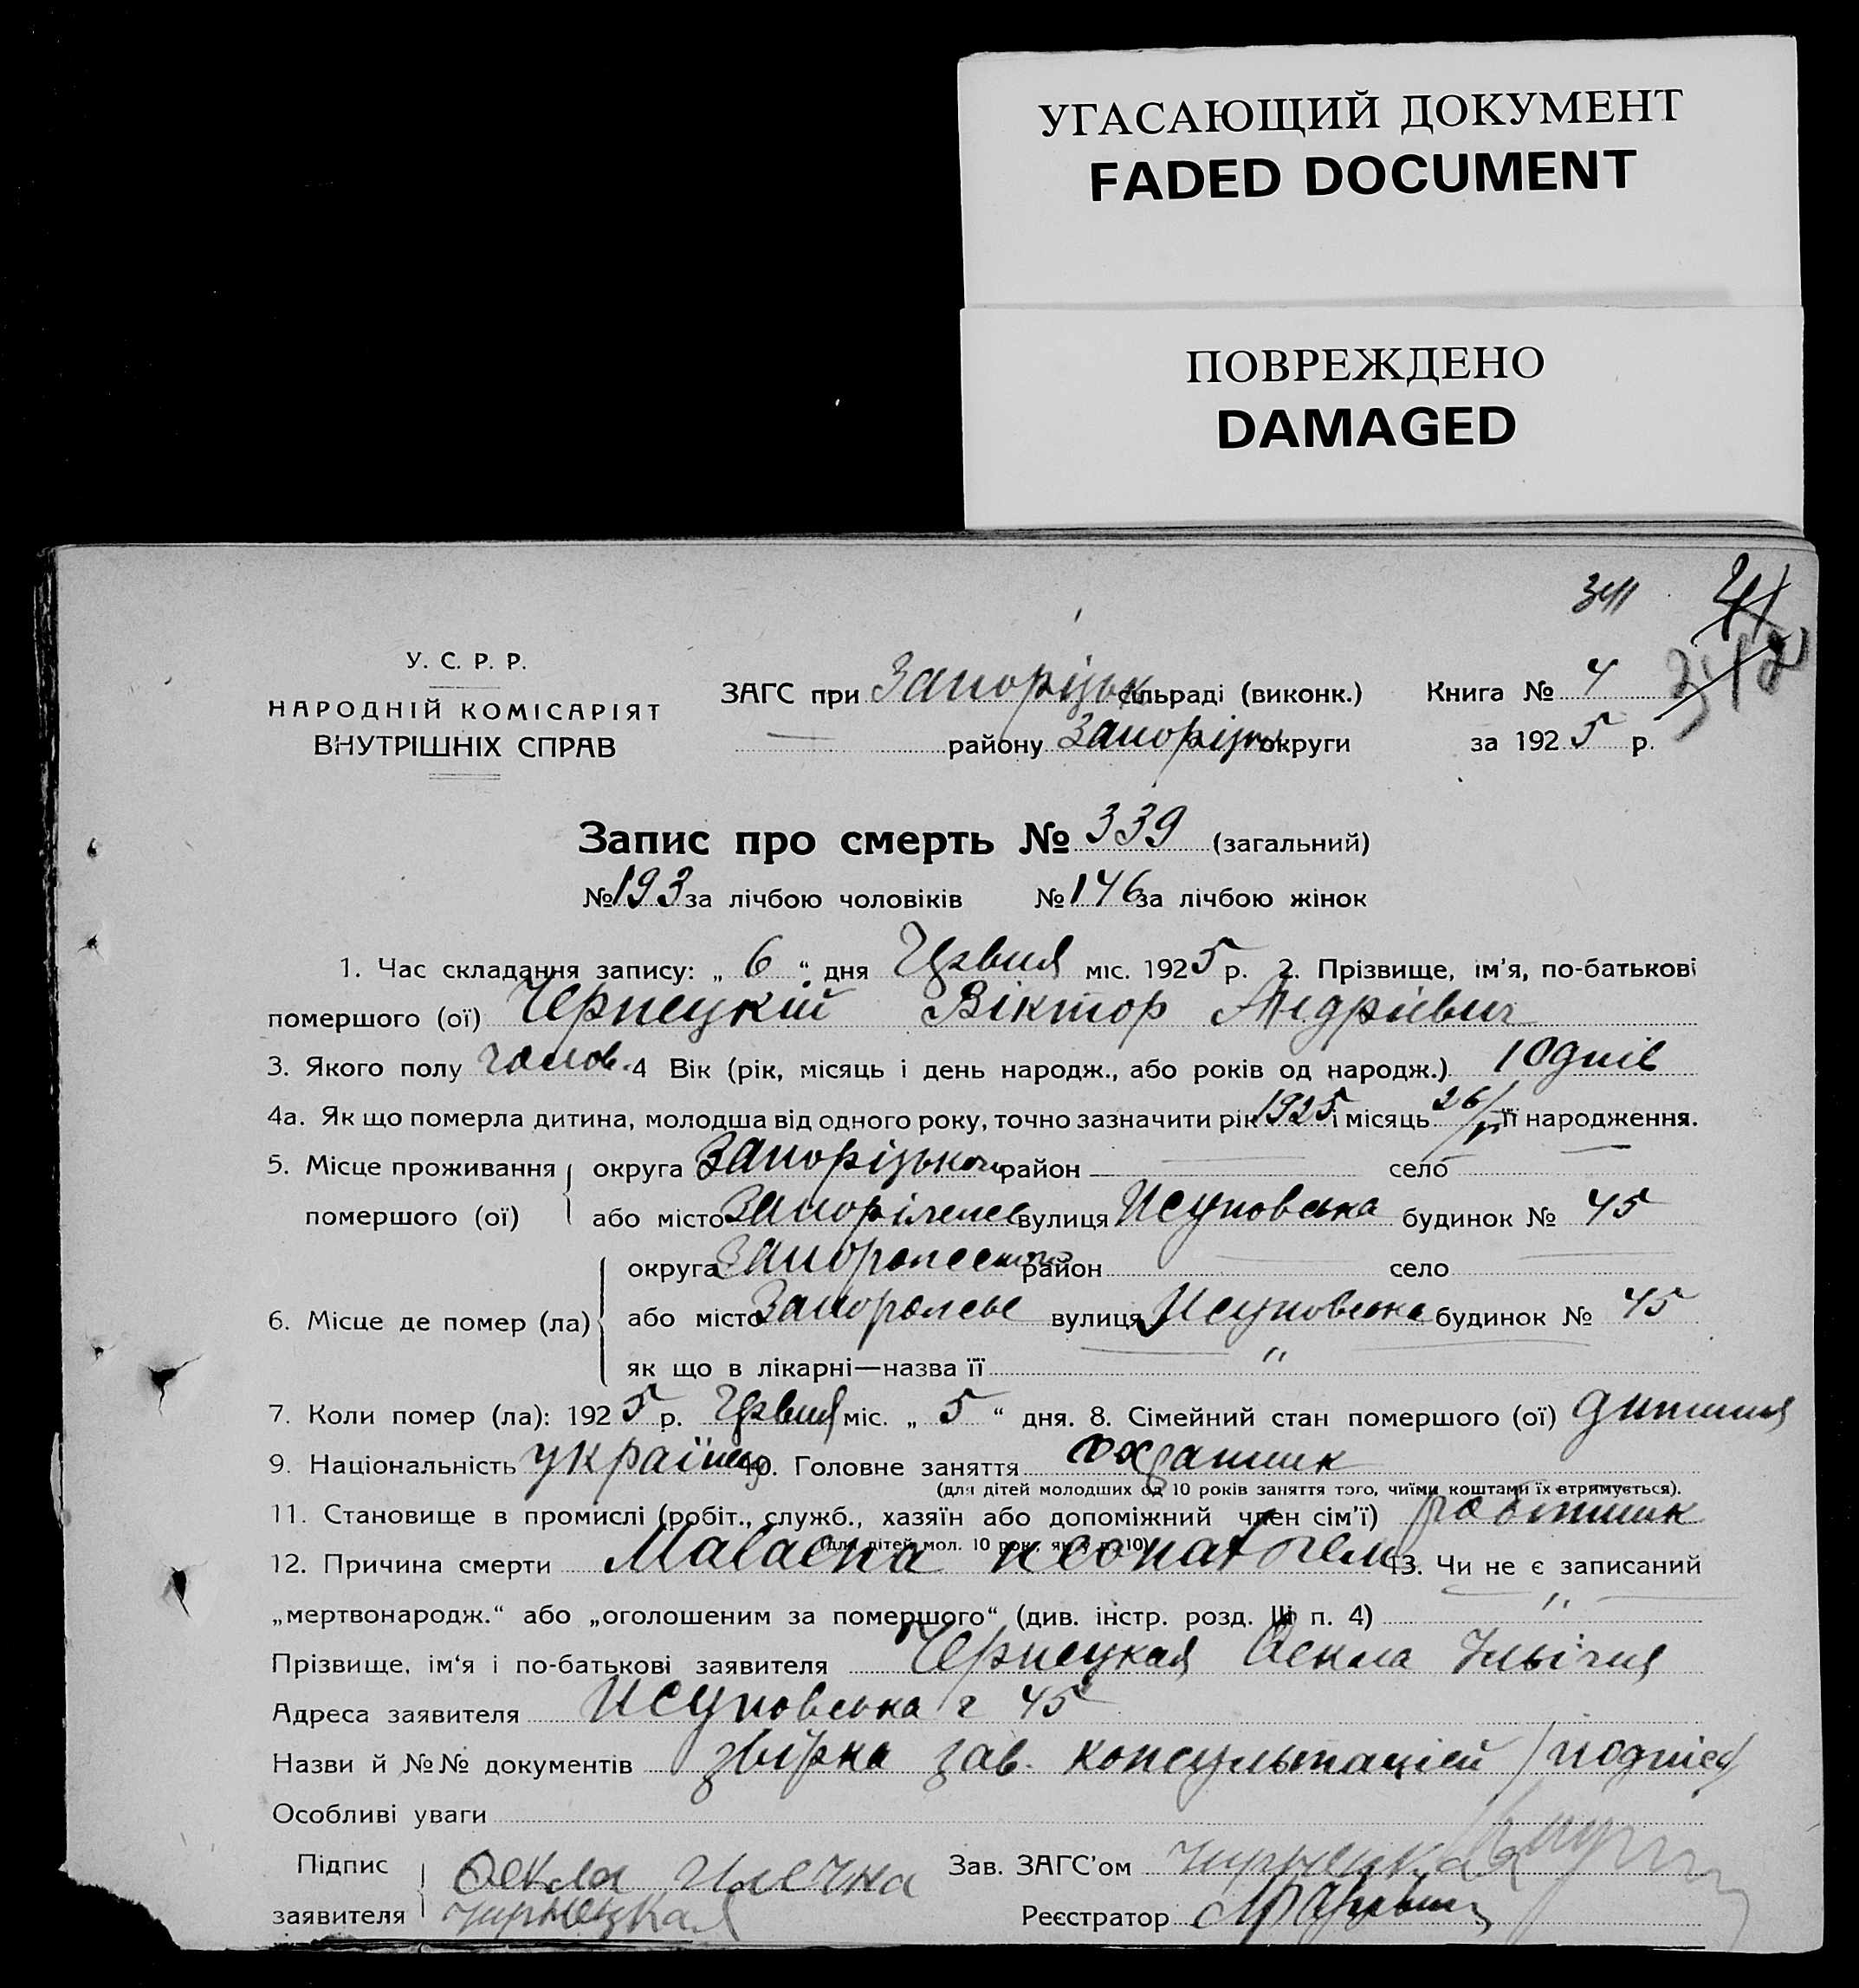 УГАСАЮЩИЙ ДОКУМЕНТ
FADED DOCUMENT
ПОВРЕЖДЕНО
DAMAGED
341 41
342
У. С. Р. Р.
НАРОДНІЙ КОМІСАРІЯТ
ВНУТРІШНІХ СПРАВ
ЗАГС при Запоріцьк сільраді (виконк.) Книга № 4
— району Запоріцьк округи за 1925 р.
Запис про смерть № 339 (загальний)
№ 193 за лічбою чоловіків № 146 за лічбою жінок
1. Час складання запису: „ 6 “ дня Червня міс. 1925 р. 2. Прізвище, ім'я, по-батькові
помершого (ої) Чернецкій Віктор Андрієвич
3. Якого полу чолов. 4 Вік (рік, місяць і день народж., або років од народж.) 10 днів
4а. Як що померла дитина, молодша від одного року, точно зазначити рік 1925 і місяць 26/V її народження.
5. Місце проживання округа Запоріцького район — село —
помершого (ої) або місто Запоріжже вулиця Исуповська будинок № 45
округа район — село —
6. Місце де помер (ла) або місто Запорожье вулиця Исуповська будинок № 45
як що в лікарні—назва її — " —
7. Коли помер (ла): 1925 р. Червня міс. „ 5 “ дня. 8. Сімейний стан помершого (ої) дитиня
9. Національність українец 10. Головне заняття охраник
(для дітей молодших од 10 років заняття того, чиїми коштами їх втримується).
11. Становище в промислі (робіт., служб., хазяїн або допоміжний член сім'ї) робітник
(для дітей мол. 10 рок., як в п. 10)
12. Причина смерти 13. Чи не є записаний
„мертвонародж.“ або „оголошеним за помершого“ (див. інстр. розд. III п. 4) — " —
Прізвище, ім'я і по-батькові заявителя Чернецкая Фекла
Адреса заявителя Исуповська 45
Назви й №№ документів зав. консультацієй /подпись/
Особливі уваги
Підпис Фекла Зав. ЗАГС'ом
заявителя Чирнецкая Реєстратор